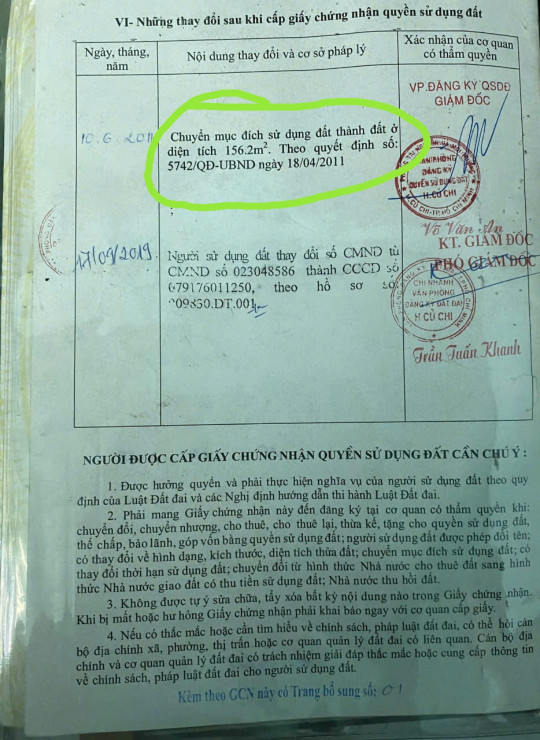 VI- Những thay đổi sau khi cấp giấy chứng nhận quyền sử dụng đất
Ngày, tháng, năm
Nội dung thay đổi và cơ sở pháp lý
Xác nhận của cơ quan có thẩm quyền
10.6.2011
Chuyển mục đích sử dụng đất thành đất ở
diện tích 156.2m². Theo quyết định số:
5742/QĐ-UBND ngày 18/04/2011
VP.ĐĂNG KÝ QSDĐ
GIÁM ĐỐC
VĂN PHÒNG
ĐĂNG KÝ
QUYỀN SỬ DỤNG ĐẤT
H.CỦ CHI
Võ Văn An
17/09/2019
Người sử dụng đất thay đổi số CMND từ
CMND số 023048586 thành CCCD số
079176011250, theo hồ sơ số:
009830.DT.001
KT. GIÁM ĐỐC
PHÓ GIÁM ĐỐC
CHI NHÁNH
VĂN PHÒNG
ĐĂNG KÝ ĐẤT ĐAI
H CỦ CHI
Trần Tuấn Khanh
NGƯỜI ĐƯỢC CẤP GIẤY CHỨNG NHẬN QUYỀN SỬ DỤNG ĐẤT CẦN CHÚ Ý :
1. Được hưởng quyền và phải thực hiện nghĩa vụ của người sử dụng đất theo quy
định của Luật Đất đai và các Nghị định hướng dẫn thi hành Luật Đất đai.
2. Phải mang Giấy chứng nhận này đến đăng ký tại cơ quan có thẩm quyền khi:
chuyển đổi, chuyển nhượng, cho thuê, cho thuê lại, thừa kế, tặng cho quyền sử dụng đất,
thế chấp, bảo lãnh, góp vốn bằng quyền sử dụng đất; người sử dụng đất được phép đổi tên;
có thay đổi về hình dạng, kích thước, diện tích thửa đất; chuyển mục đích sử dụng đất; có
thay đổi thời hạn sử dụng đất; chuyển đổi từ hình thức Nhà nước cho thuê đất sang hình
thức Nhà nước giao đất có thu tiền sử dụng đất; Nhà nước thu hồi đất.
3. Không được tự ý sửa chữa, tẩy xóa bất kỳ nội dung nào trong Giấy chứng nhận.
Khi bị mất hoặc hư hỏng Giấy chứng nhận phải khai báo ngay với cơ quan cấp giấy.
4. Nếu có thắc mắc hoặc cần tìm hiểu về chính sách, pháp luật đất đai, có thể hỏi cán
bộ địa chính xã, phường, thị trấn hoặc cơ quan quản lý đất đai có liên quan. Cán bộ địa
chính và cơ quan quản lý đất đai có trách nhiệm giải đáp thắc mắc hoặc cung cấp thông tin
về chính sách, pháp luật đất đai cho người sử dụng đất.
Kèm theo GCN này có Trang bổ sung số: 01